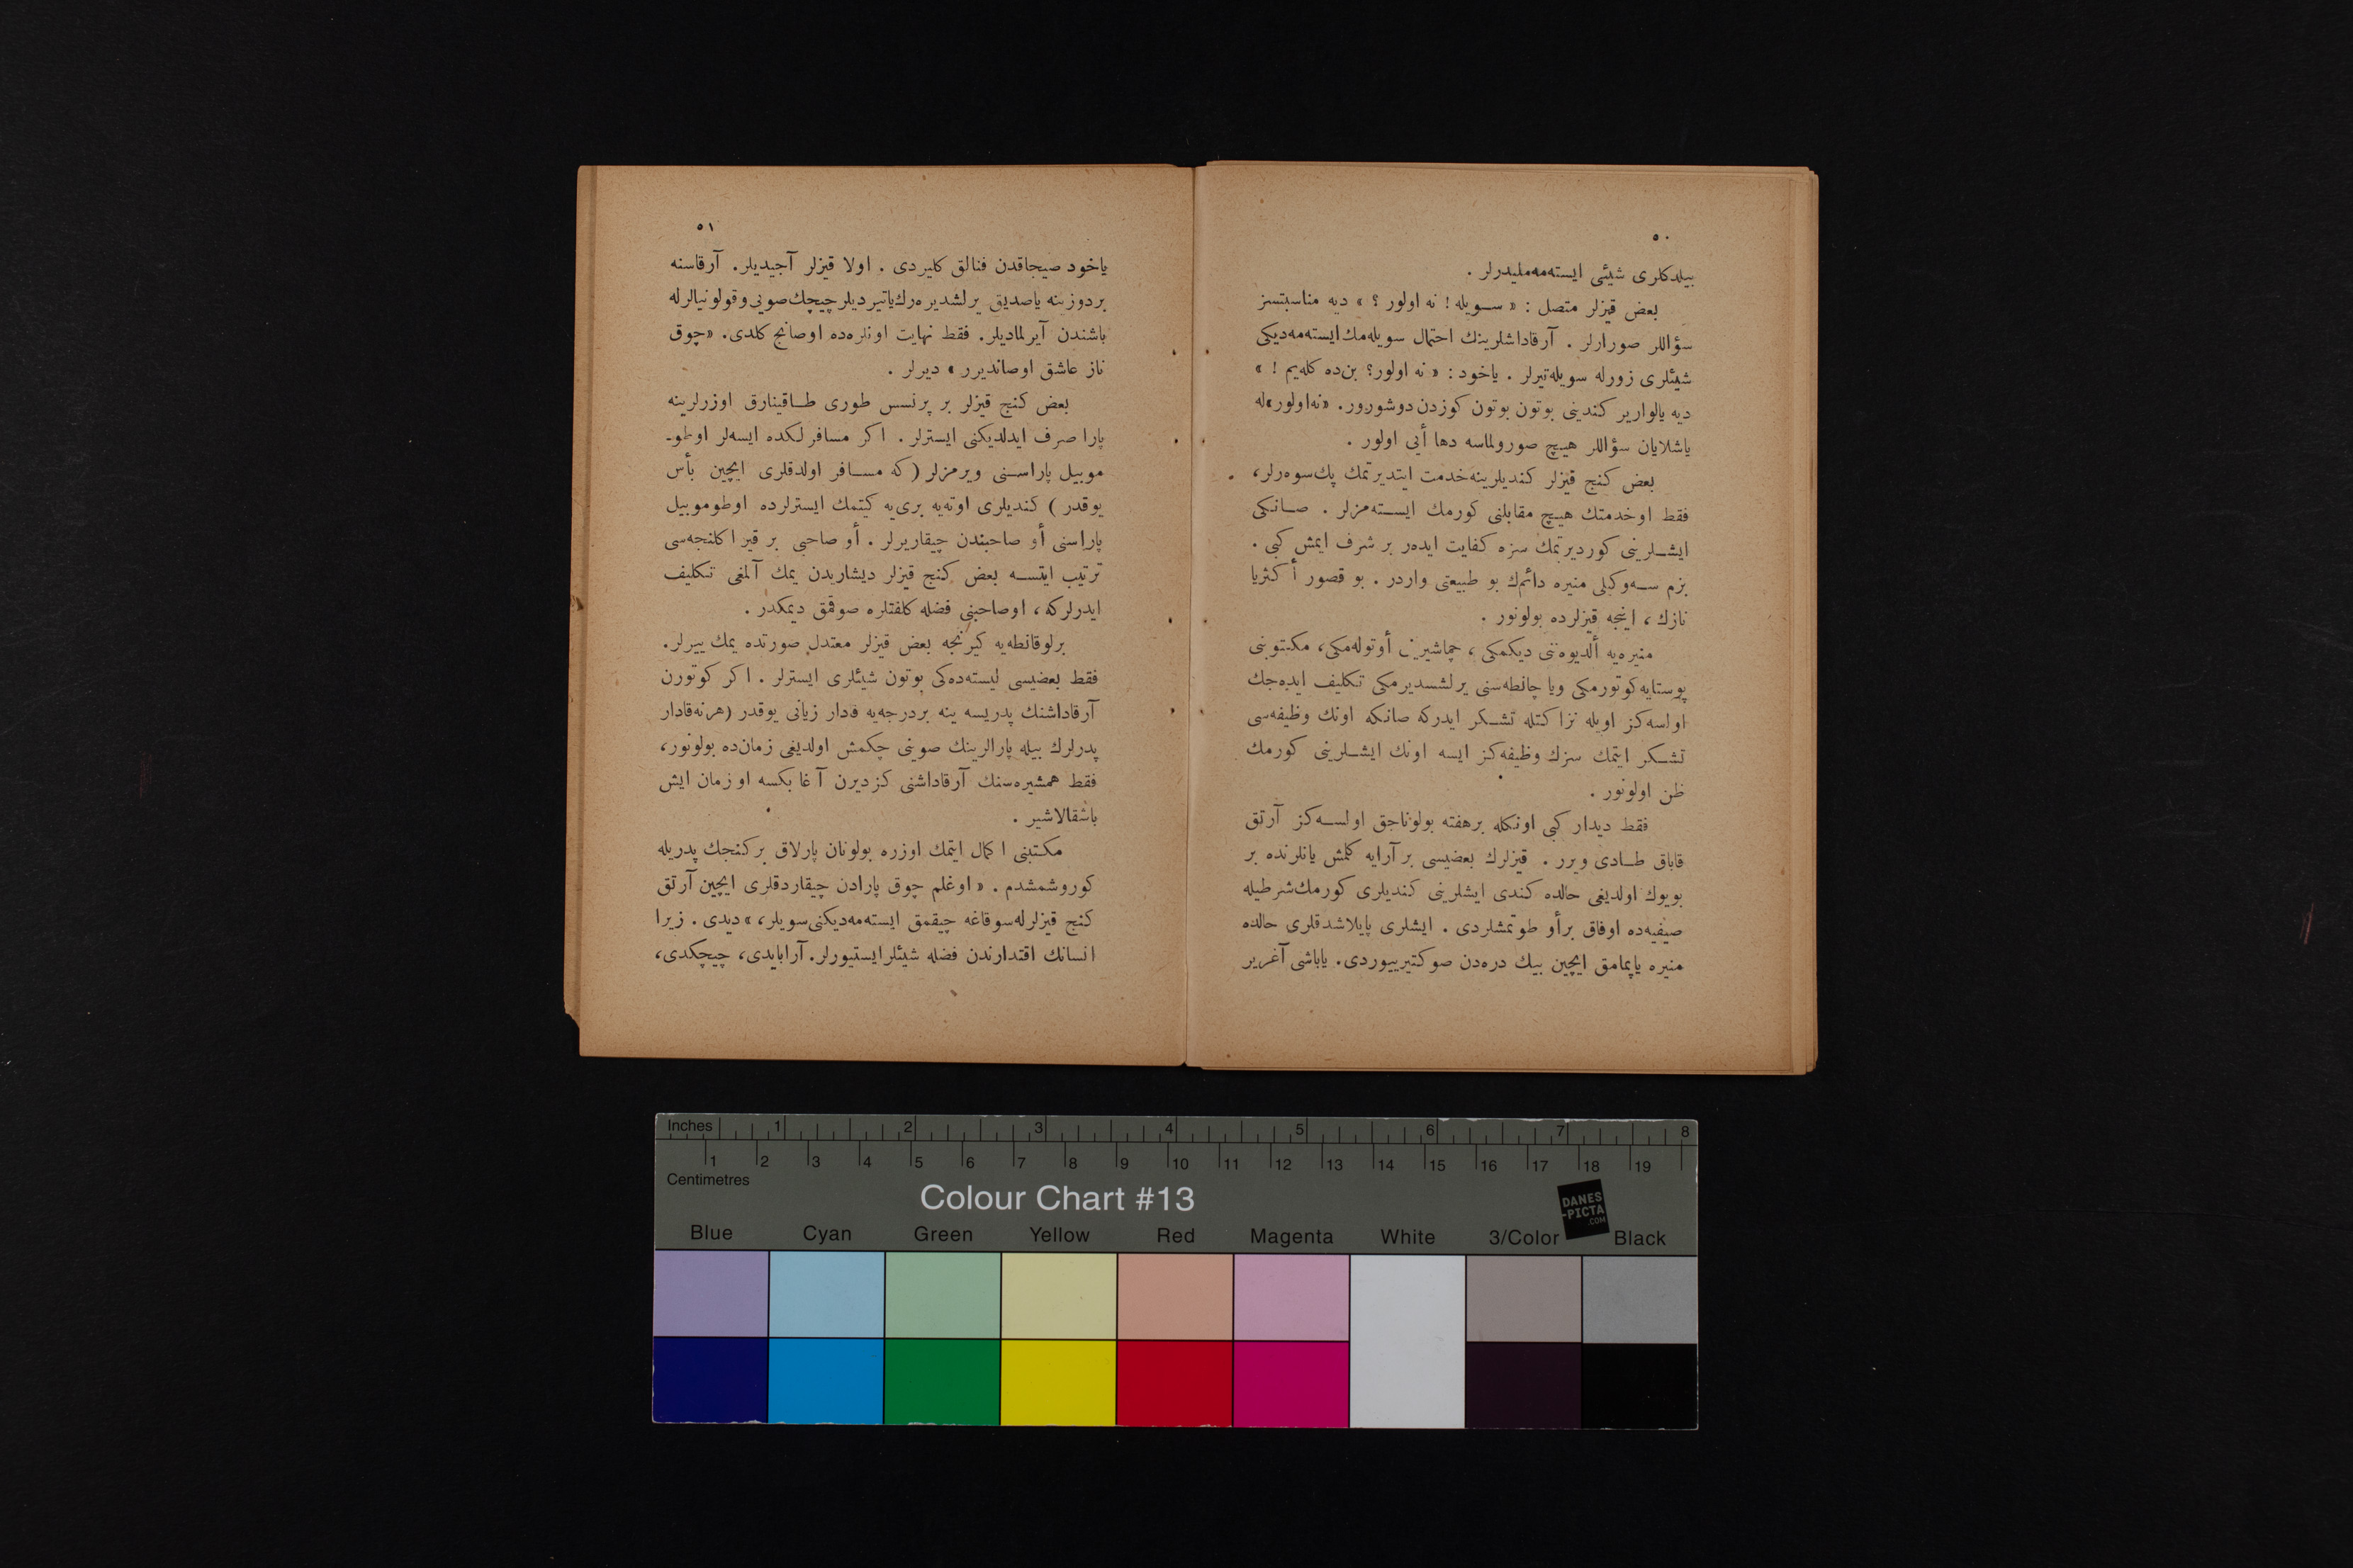 ٥٠
بیلدکلری شیئی ایسته‌مه‌ملیدرلر .
بعض قیزلر متصل : « سـویله ! نه اولور ؟ » دیه مناسبتسز
سؤاللر صورارلر . آرقاداشلرینك احتمال سویله‌مك ایسته‌مه‌دیکی
شیئلری زورله سویله‌تیرلر . یاخود : « نه اولور؟ بن‌ده کله‌یم ! »
دیه یالواریر کندینی بوتون بوتون کوزدن دوشورور. «نه‌اولور»له
باشلایان سؤاللر هیـچ صورولماسه دها أیی اولور .
بعض کنج قیزلر کندیلرینه‌خدمت ایتدیرتمك پك‌سوه‌رلر،
فقط اوخدمتك هیـچ مقابلنی کورمك ایسـته‌مزلر . صـانکی
ایشـلرینی کوردیرتمك سزه کفایت ایده‌ر بر شرف ایمش کبی .
بزم سـه‌وکیلی منیره دائم‌ك بو طبیعتی واردر . بو قصور أکثریا
نازك ، اینجه قیزلرده بولونور .
منیره‌یه ألدیوه‌ننی دیکمکی ، چماشیرینی أوتوله‌مکی، مکتوبنی
پوستایه‌کوتورمکی ویا چانطه‌سنی یرلشـدیرمکی تـکلیف ایده‌جك
اولسه‌کز اویله نزاکتله تشـکر ایدرکه صانکه اونك وظیفه‌سی
تشـکر ایتمك سزك وظیفه‌کز ایسه اونك ایشـلرینی کورمك
ظن اولونور .
فقط دیدار کبی اونکله برهفته بولوناجق اولسـه‌کز آرتق
قاباق طـادی ویرر . قیزلرك بعضیسی بر آرایه کلمش یانلرنده بر
بویوك اولدیغی حالده کندی ایشلرینی کندیلری کورمك‌شرطیله
صیفیه‌ده اوفاق برأو طوتمشلردی . ایشلری پایلاشدقلری حالده
منیره یاپمامق ایچین بیك دره‌دن صوکتیرییوردی. یاباشی آغریر
٥١
یاخود صیجاقدن فنالق کلیردی . اولا قیزلر آجیدیلر. آرقاسنه
بردوزینه یاصدیق یرلشدیره‌رك‌یاتیردیلر چیچك‌صویی‌وقولونیالرله
باشندن آیرلمادیلر. فقط نهایت اونلره‌ده اوصانج کلدی. «چوق
ناز عاشق اوصاندیرر » دیرلر .
بعض کنج قیزلر بر پرنسس طوری طـاقینارق اوزرلرینه
پارا صرف ایدلدیکنی ایسترلر . اکر مسافرلکده ایسه‌لر اوطو-
موبیل پاراسـنی ویرمزلر (که مسـافر اولدقلری ایچین بأس
یوقدر ) کندیلری اوته‌یه بری‌یه کیتمك ایسترلرده اوطوموبیل
پاراسنی أو صاحبندن چیقاریرلر . أو صاحبی بر قیر اکلنجه‌سی
ترتیب ایتسـه بعض کنج قیزلر دیشاریدن یمك آلمغی تـکلیف
ایدرلرکه ، اوصاحبنی فضله کلفتلره صوقمق دیمکدر .
برلوقانطه‌یه کیرنجه بعض قیزلر معتدل صورتده یمك ییرلر.
فقط بعضیسی لیسته‌ده‌کی بوتون شیئلری ایسترلر . اکر کوتورن
آرقاداشنك پدریسه ینه بردرجه‌یه قادار زیانی یوقدر (هرنه‌قادار
پدرلرك بیله پارالرینك صوینی چکمش اولدیغی زمان‌ده بولونور،
فقط همشیره‌سنك آرقاداشنی کزدیرن آغا بكسه او زمان ایش
باشقالاشیر .
مکـتبنی اکمال ایتمك اوزره بولونان پارلاق برکنجك پدریله
کوروشمشدم . « اوغلم چوق پارادن چیقاردقلری ایچین آرتق
کنج قیزلرله‌سوقاغه چیقمق ایسته‌مه‌دیکنی‌سویلر، » دیدی . زیرا
انسانك اقتدارندن فضله شیئلرایستیورلر. آرابایدی، چیچکدی،
Inches 1 2 3 4 5 6 7 8
1 2 3 4 5 6 7 8 9 10 11 12 13 14 15 16 17 18 19
Centimetres
Colour Chart #13
DANES
-PICTA
.COM
Blue Cyan Green Yellow Red Magenta White 3/Color Black